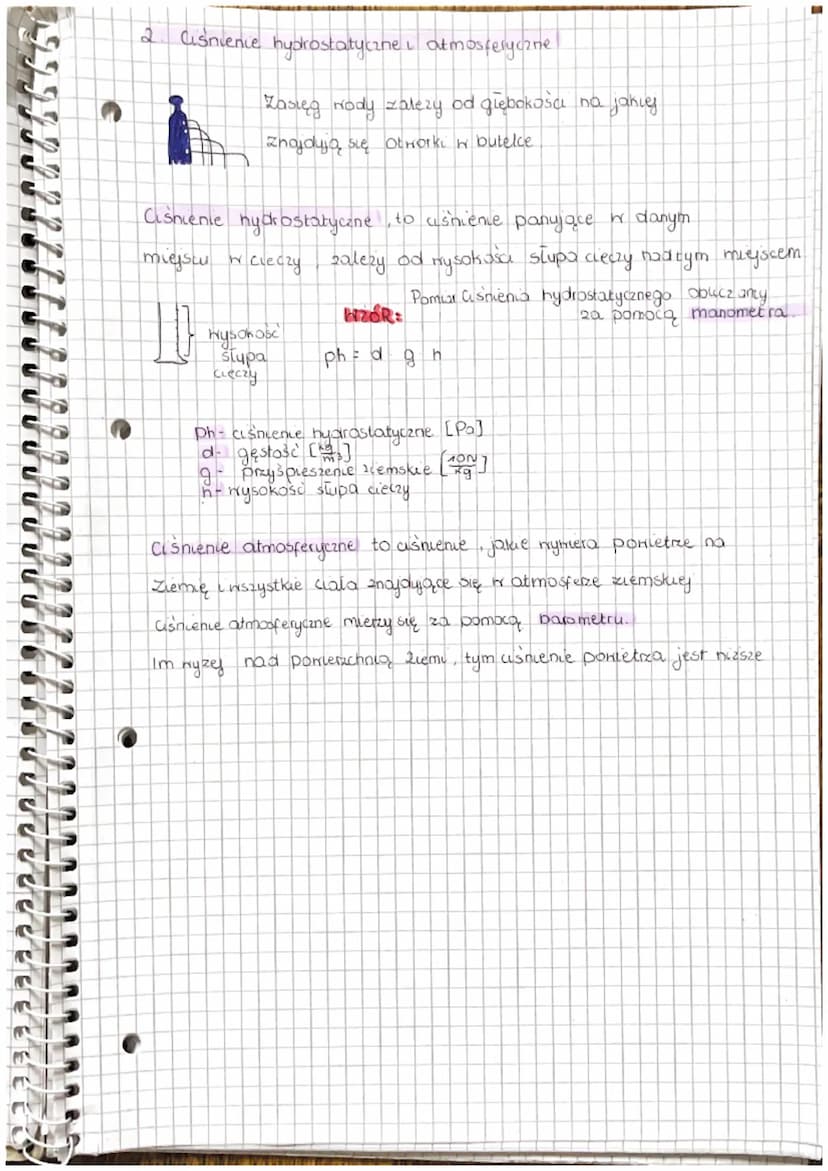 2. Ciśnienie hydrostatyczne i atmosferyczne
Zasięg wody zależy od głębokości na jakiej
znajdują się otworki w butelce
Ciśnienie hydrostatyczne, to ciśnienie panujące w danym
miejscu w cieczy, zależy od wysokości słupa cieczy nad tym miejscem
Pomiar Ciśnienia hydrostatycznego
za pomocą manometra.
WZÓR:
wysokość
słupa
cieczy
ph = d g h
ph - ciśnienie hydrostatyczne [Pa]
d - gęstość [kg/m³]
g - przyśpieszenie ziemskie [10N/kg]
h - wysokość słupa cieczy
Ciśnienie atmosferyczne to ciśnienie, jakie wywiera powietrze na
Ziemię i wszystkie ciała znajdujące się w atmosferze ziemskiej
Ciśnienie atmosferyczne mierzy się za pomocą barometru.
Im wyżej nad powierzchnią Ziemi, tym ciśnienie powietrza jest niższe